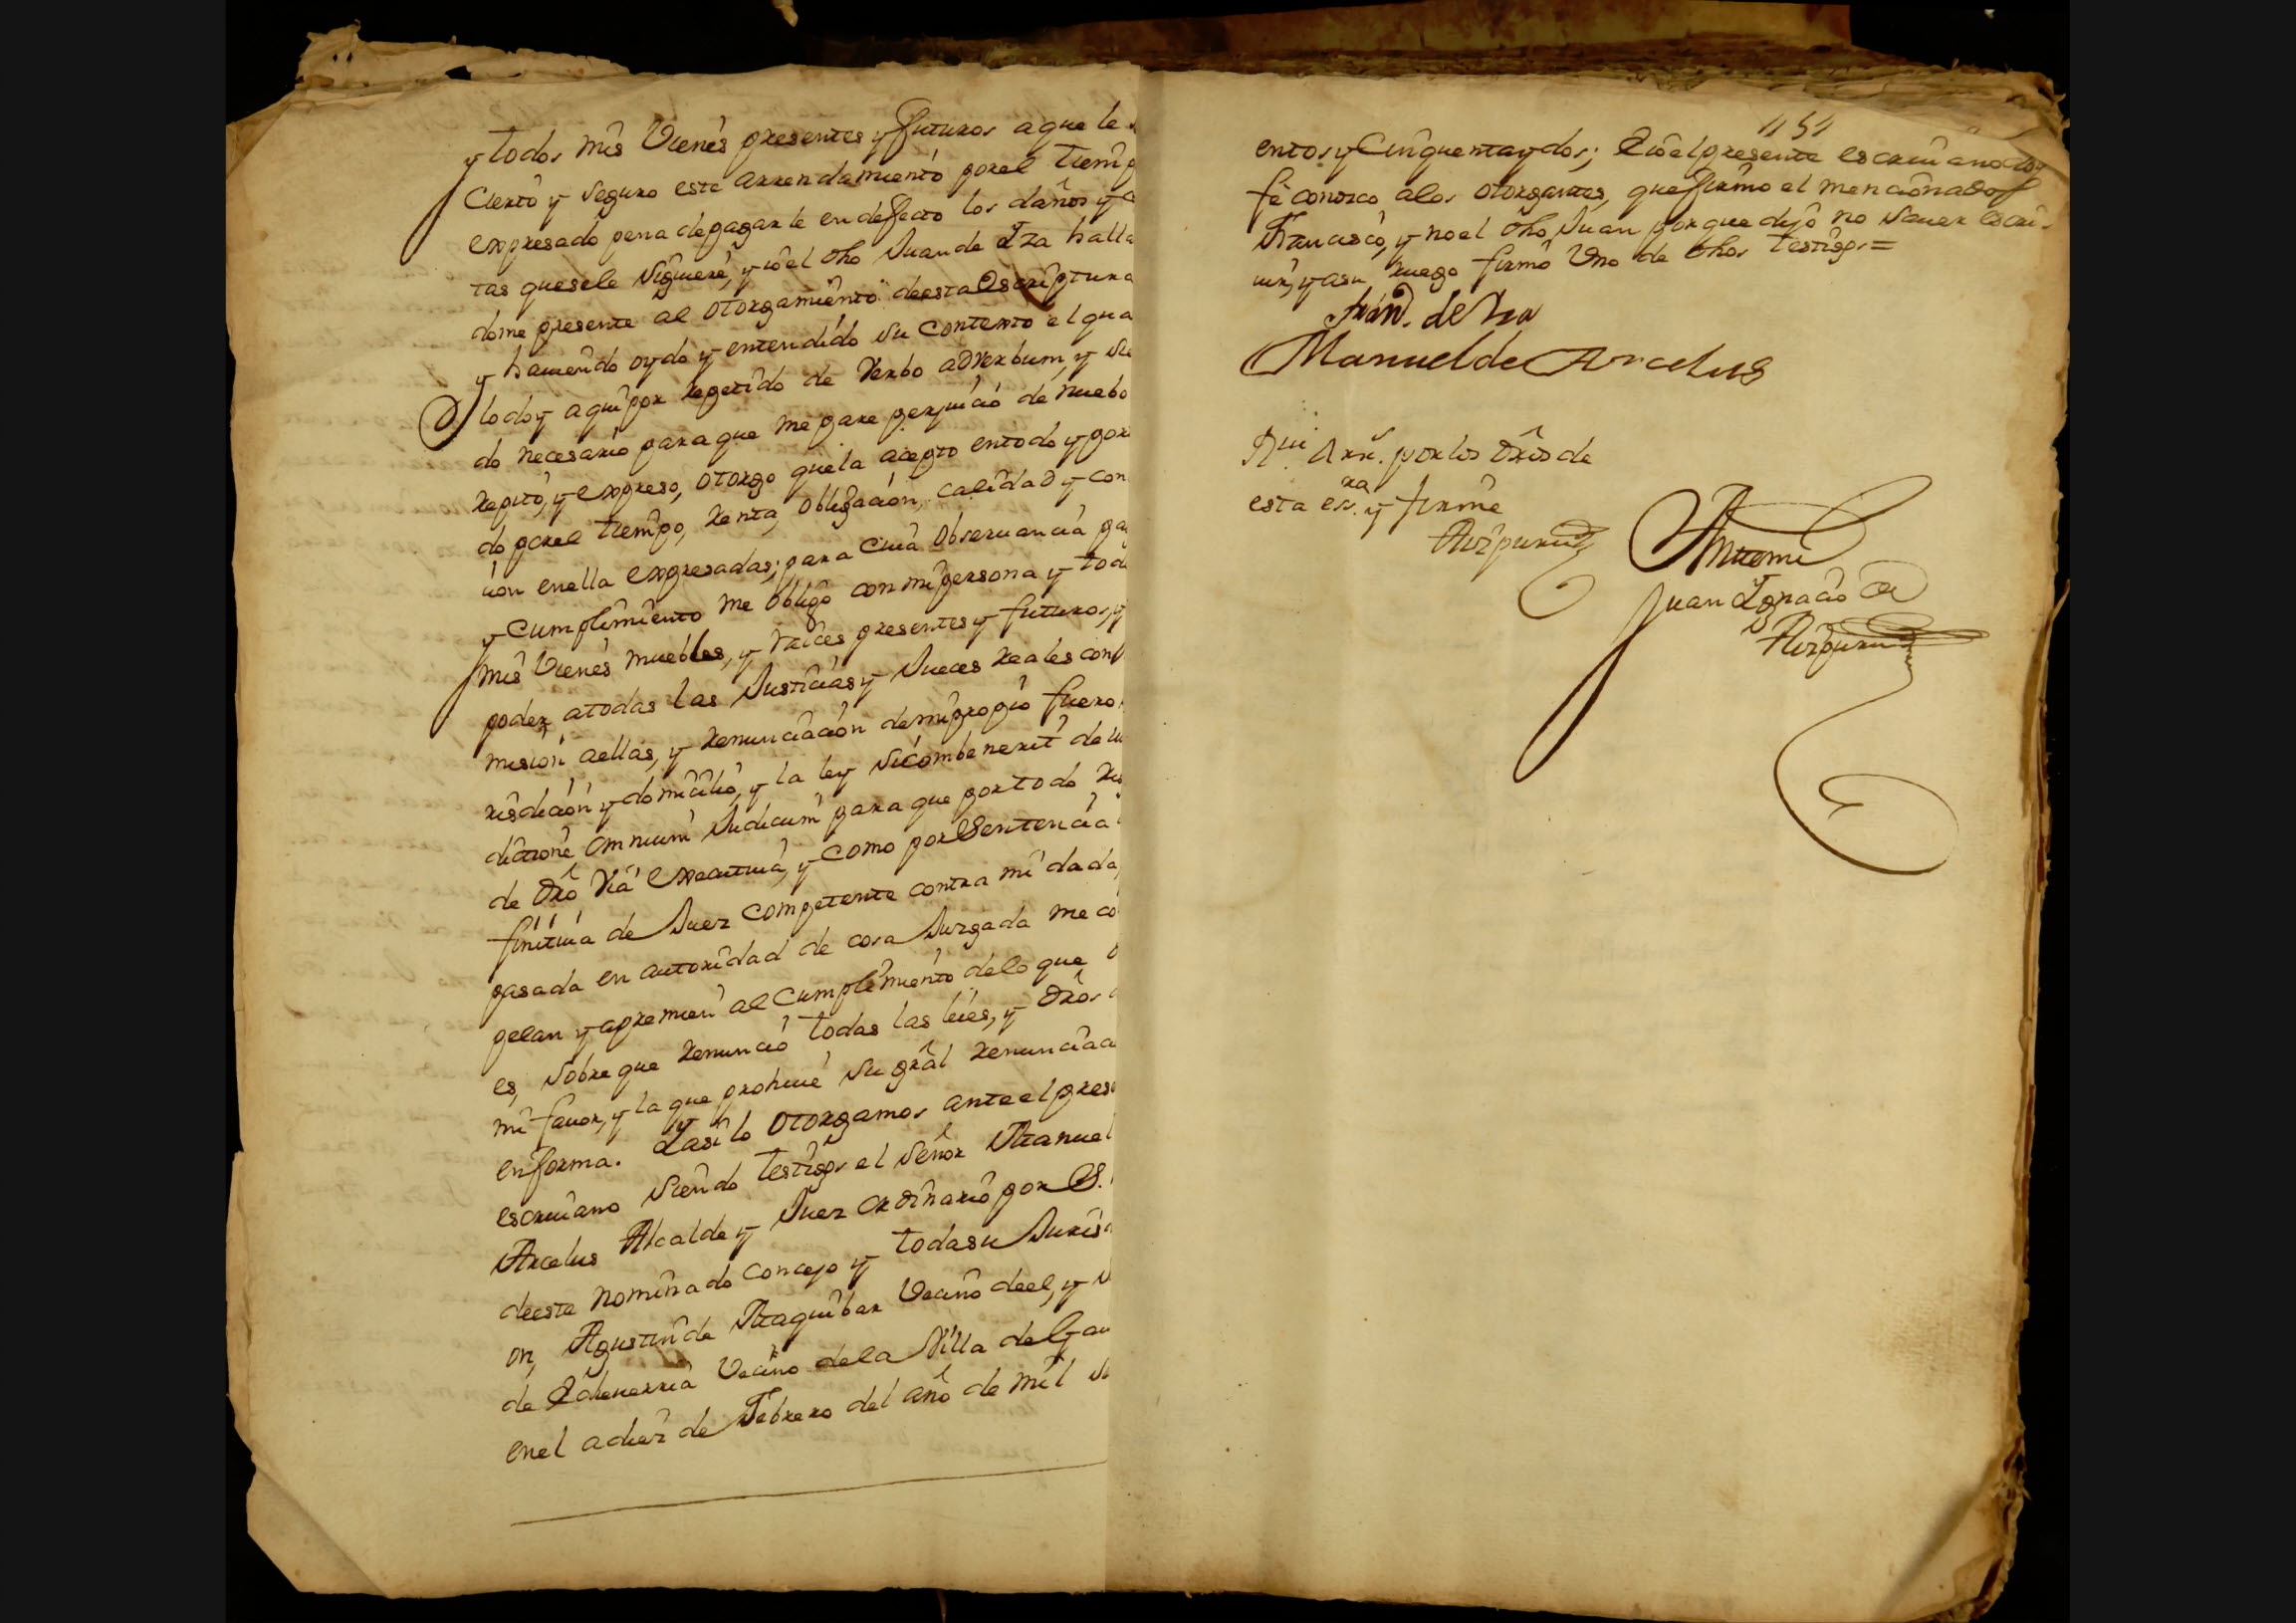 y todos mis Vienes presentes y futuros a que le
Cierto y seguro este arrendamiento por el tiemp
expresado pena de pagarle en deffecto los daños y
tas que se le siguiere, y io el dho Juan de Iza halla
dome presente al otorgamiento de esta Escriptura
y haviendo oydo y entendido su contexto el qua
lo doy aqui por repetido de Verbo adverbum, y si
do necesario para que me pare perjuicio de nuebo
repito, y expreso, otorgo que la acepto en todo y por
do por el tiempo, renta, obligacion, calidad y con
cion en ella expresadas; para cuia observancia pa
y cumplimiento me obligo con mi persona y tod
mis Vienes muebles, y raices presentes y futuros, y
poder a todas las Justicias y Jueces reales con
mision a ellas, y renunciacion de mi propio fuero
risdicion y domicilio, y la ley sicombenerit de
dictione omnium Judicum para que por todo
de dro via executiva, y como por Sentencia
finitiva de Juez competente contra mi dada,
pasada en autoridad de cosa Juzgada me co
pelan y apremien al Cumplimiento de lo que
es, sobre que renuncio todas las leies, y dros
mi favor, y la que prohive su gral renunciac
en forma. Y asi lo otorgamos ante el pres
escrivano siendo testigos el Señor Manuel
Arcelus Alcalde y Juez ordinario por S.
de este nominado Concejo y toda su Juris
on, Agustin de Ataquibar Vecino de el, y
de Echeverria Vecino de la Villa de Gav
en el a diez de Febrero del año de mil
151
entos y Cinquenta y dos; E io el presente escrivano doy
fe conozco a los otorgantes, que firmo el mencionado
Francisco, y no el dho Juan porque dijo no saver escri-
vir, y a su ruego firmo Uno de dhos testigos=
Fran.co de Iza
Manuel de Arcelus
por los dros de
esta ess.ra y firme
Aizpuru
Antemi
Juan Ignacio de
Aizpuru